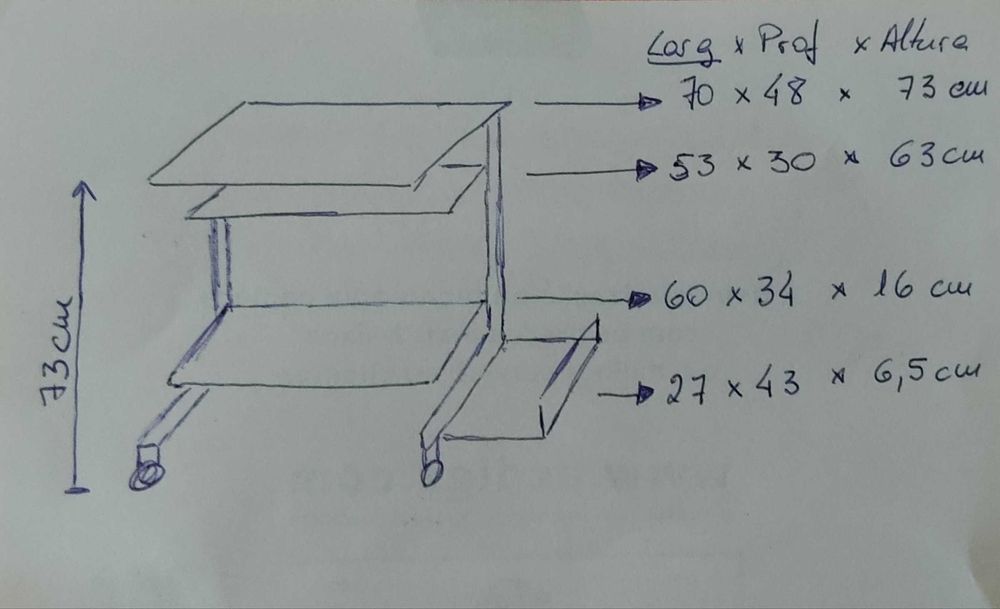 Larg x Prof x Altura
70 x 48 x 73 cm
53 x 30 x 63 cm
60 x 34 x 16 cm
27 x 43 x 6,5 cm
73 cm